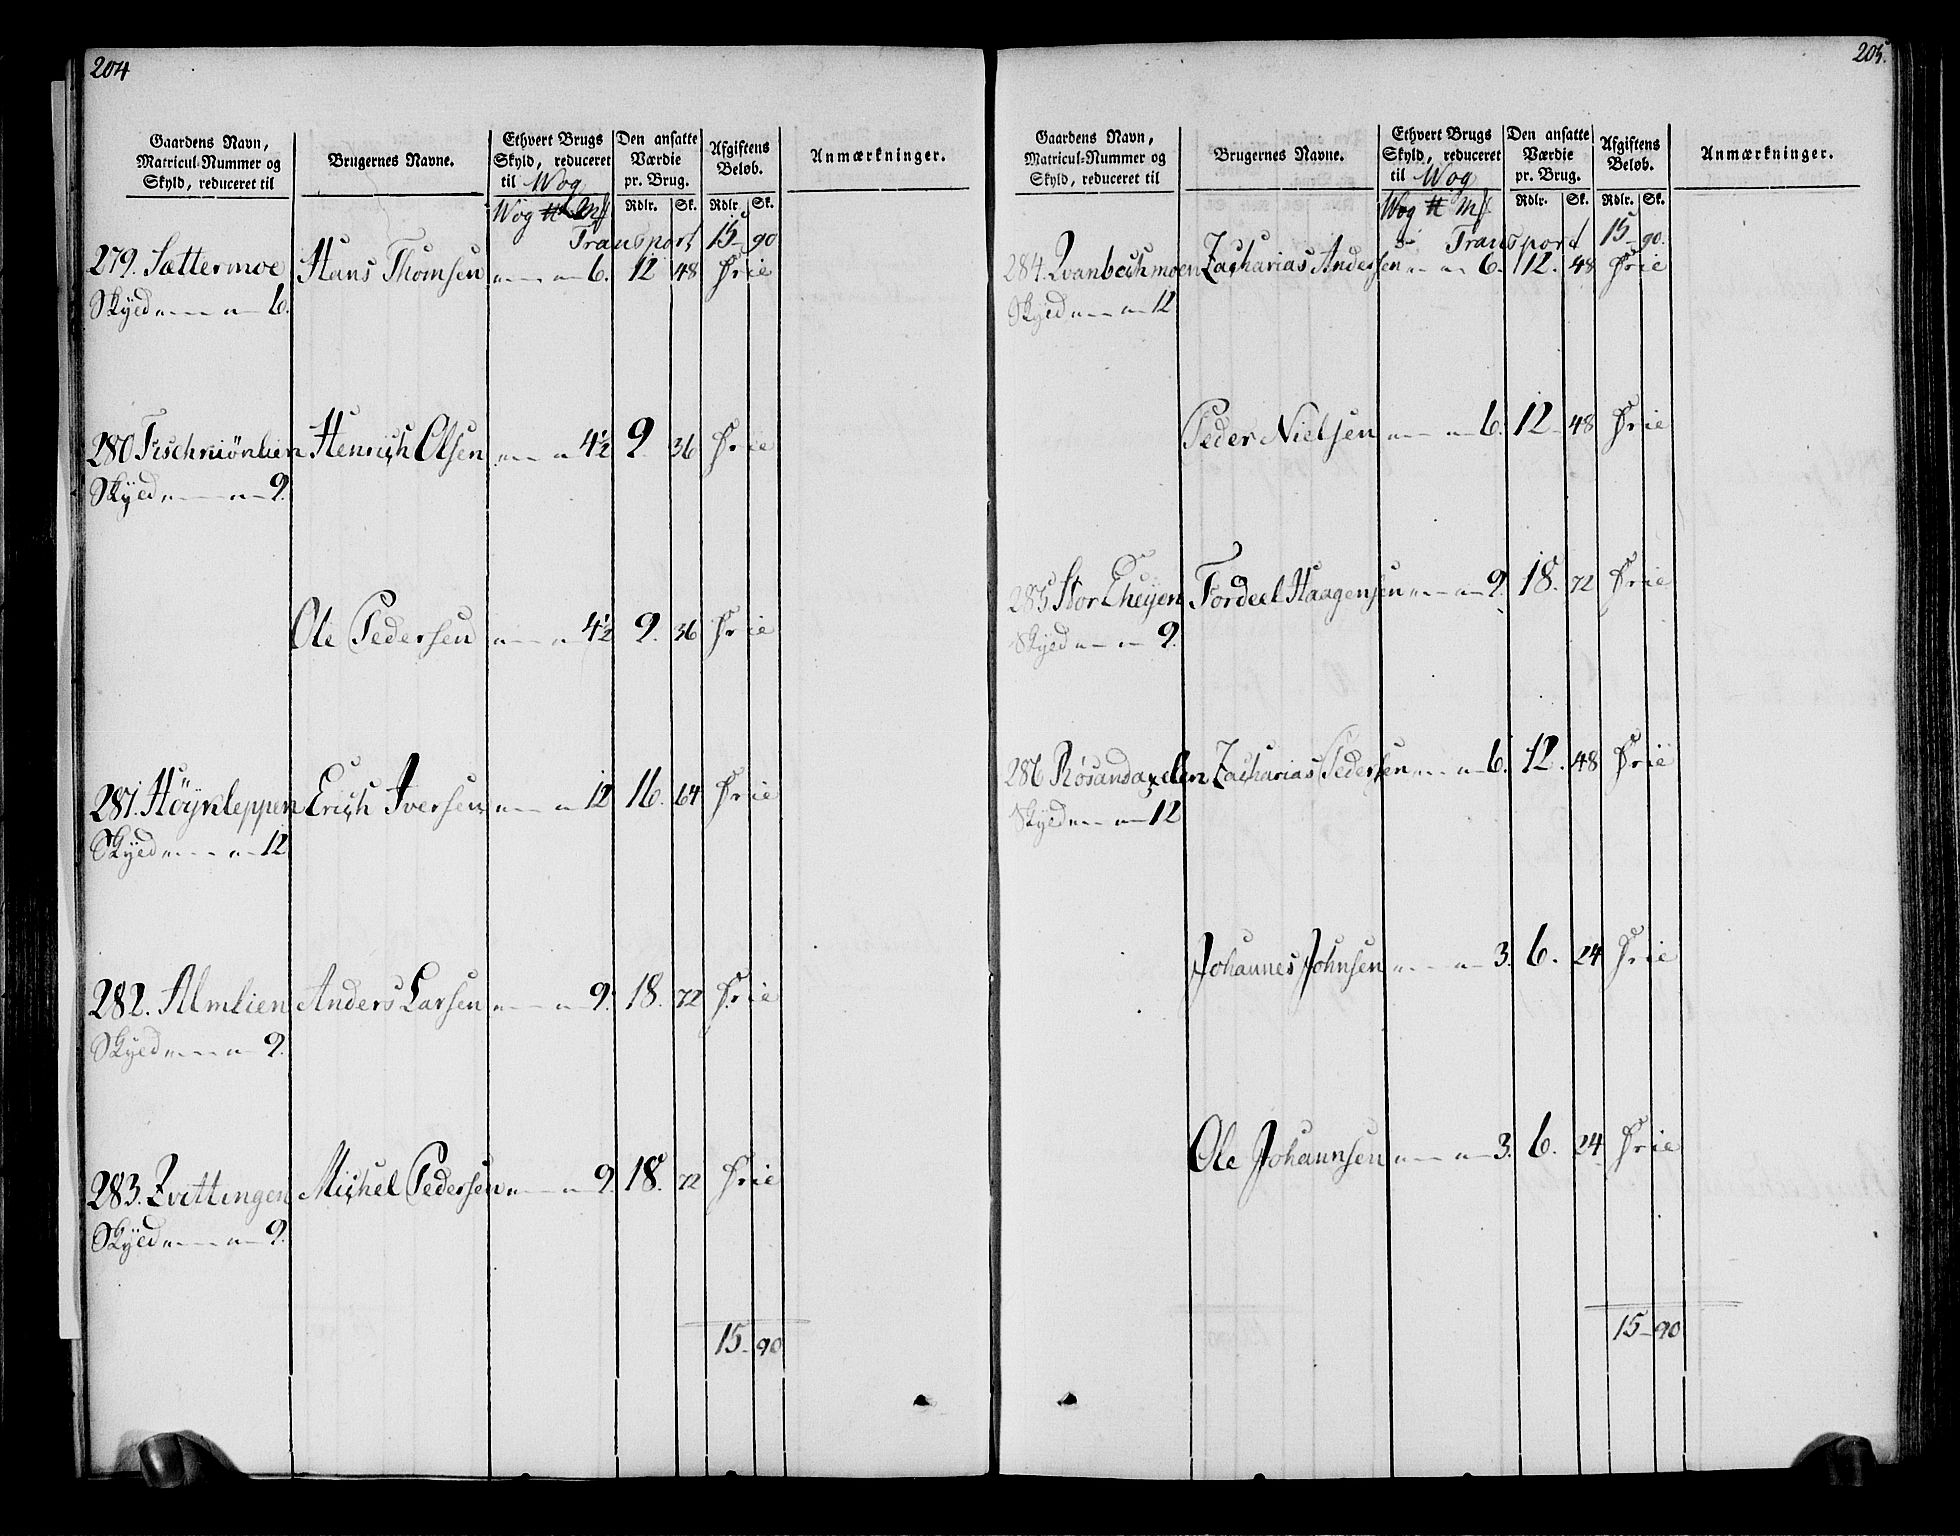 204
Gaardens Navn, Matricul-Nummer og Skyld, reduceret til
Brugernes Navne.
Ethvert Brugs Skyld, reduceret til Wog
Den ansatte Værdie pr. Brug.
Afgiftens Beløb.
Anmærkninger.
Wog # Mk Rdlr. Sk. Rdlr. Sk.
Transport 15 - 90
279. Sættermoe Hans Thomsen „ — „ — 6. 12 48 Frie
Skyld „ — „ — 6.
280 Fischmiönlien Henrich Olsen „ — „ 4½ 9 36 Frie
Skyld „ — „ — 9.
Ole Pedersen „ — „ 4½ 9. 36 Frie
281. Höynleppen Erich Iversen „ — „ 12 16. 64 Frie
Skyld „ — „ — 12
282. Almlien Anders Larsen „ — „ — 9. 18. 72 Frie
Skyld „ — „ — 9.
283. Qvittingen Michel Pedersen „ — „ — 9. 18. 72 Frie
Skyld „ — „ — 9.
15 - 90
205.
Gaardens Navn, Matricul-Nummer og Skyld, reduceret til
Brugernes Navne.
Ethvert Brugs Skyld, reduceret til Wog
Den ansatte Værdie pr. Brug.
Afgiftens Beløb.
Anmærkninger.
Wog # Mk Rdlr. Sk. Rdlr. Sk.
Transport 15 - 90.
284. Qvanbechmoen Zacharias Andersen „ — „ 6. 12. 48 Frie
Skyld „ — „ — 12
Peder Nielsen „ — „ — 6. 12 - 48 Frie
285 Stor Eheyen Tordeel Haagensen „ — „ 9. 18. 72 Frie
Skyld „ — „ — 9.
286 Rösandaxelen Zacharias Pedersen „ — „ 6. 12. 48 Frie
Skyld „ — „ — 12
Johannes Johnsen „ — „ — 3. 6. 24 Frie
Ole Johannsen „ — „ — 3. 6. 24 Frie
15 - 90